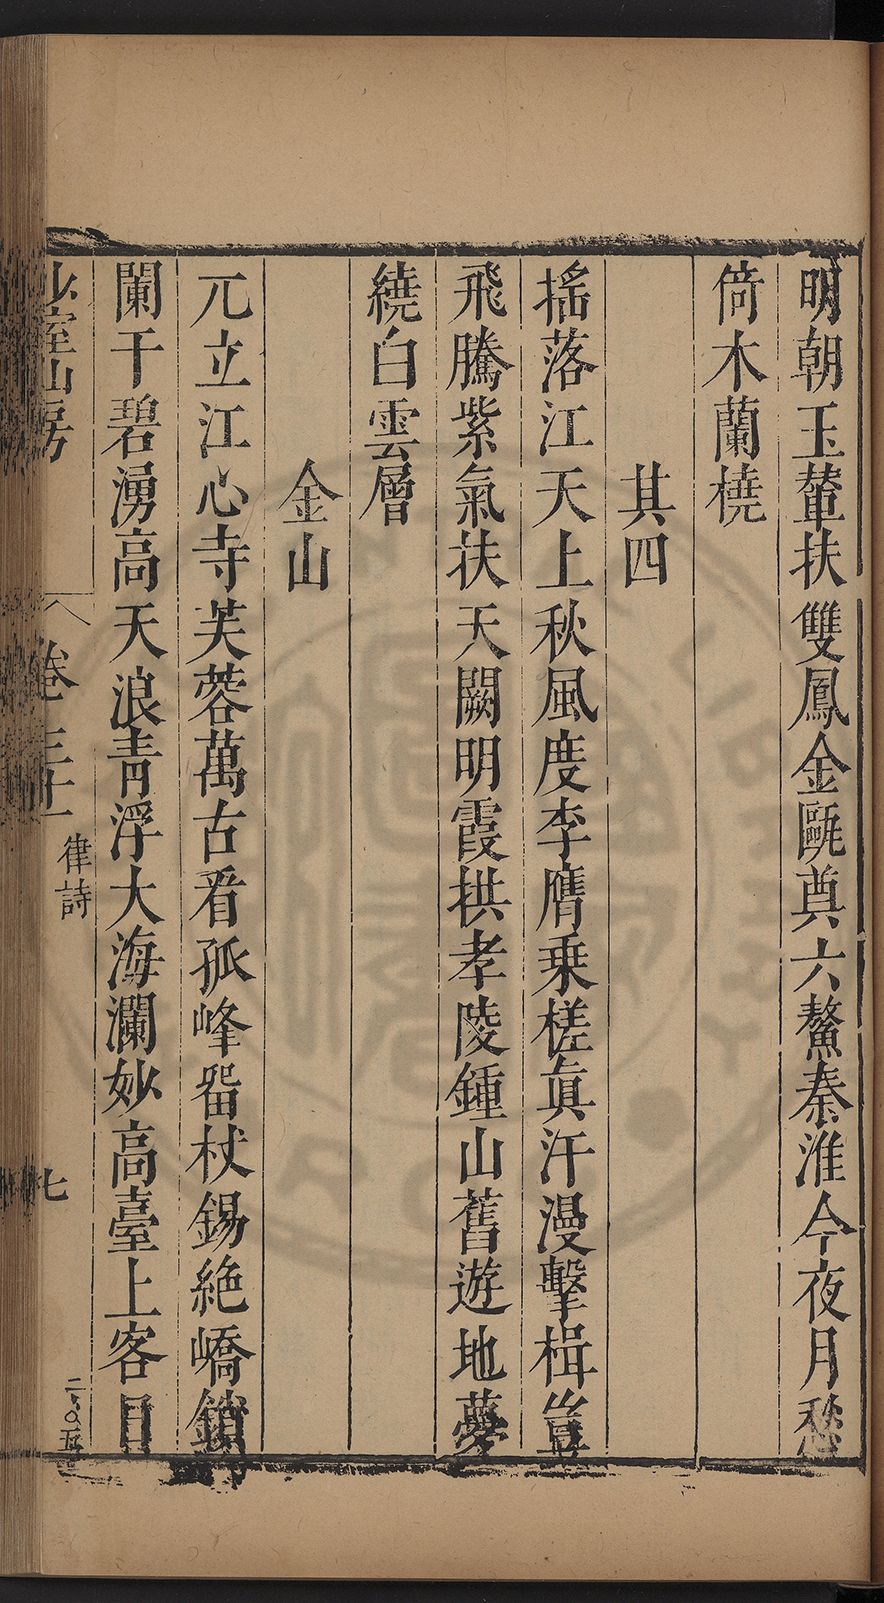 明朝玉輦扶雙鳳金甌奠六鰲秦淮今夜月愁
倚木蘭橈
其四
搖落江天上秋風度李膺乗槎真汗漫擊楫豈
飛騰紫氣扶天闕明霞拱孝陵鍾山舊遊地夢
繞白雲層
金山
兀立江心寺芙蓉萬古看孤峰畱杖錫絶嶠鎖
闌干碧湧高天浪青浮大海瀾妙高臺上客目
少室山房
卷三十一
律詩
七